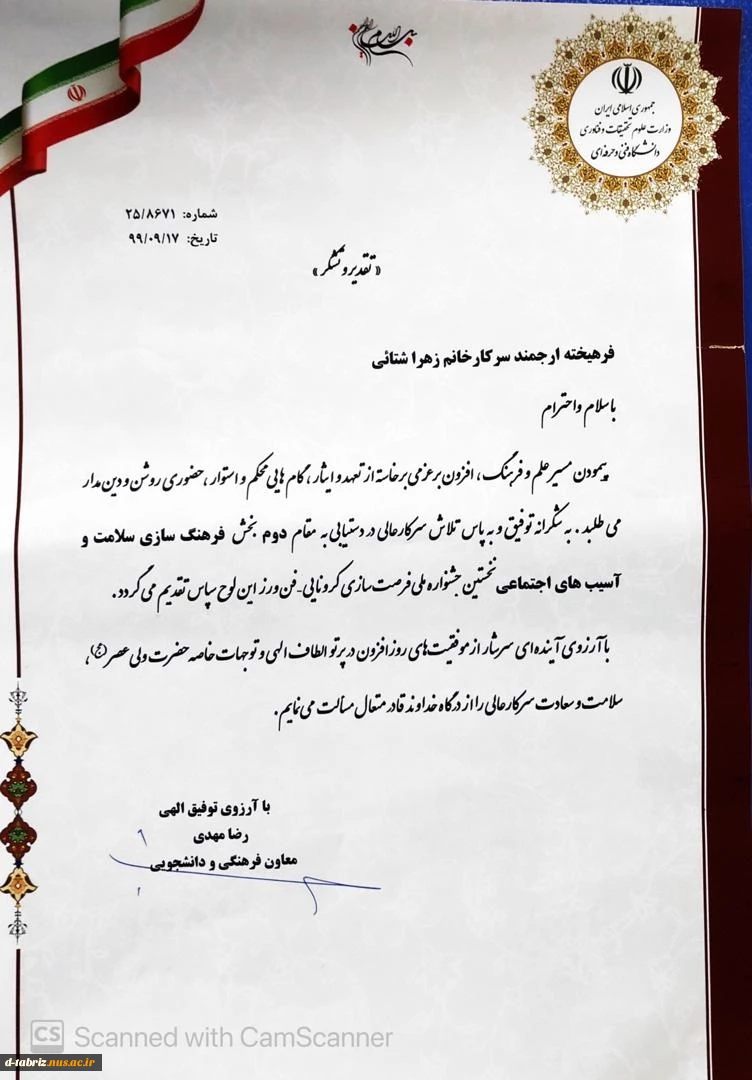 بسم الله الرحمن الرحیم
جمهوری اسلامی ایران
وزارت علوم تحقیقات و فناوری
دانشگاه فنی و حرفه‌ای
شماره: ۲۵/۸۶۷۱
تاریخ: ۹۹/۰۹/۱۷
«تقدیر و تشکر»
فرهیخته ارجمند سرکار خانم زهرا شتائی
با سلام و احترام
پیمودن مسیر علم و فرهنگ، افزون بر عزمی برخاسته از تعهد و ایثار، گام هایی محکم و استوار، حضوری روشن و دین مدار
می طلبد. به شکرانه توفیق و به پاس تلاش سرکارعالی در دستیابی به مقام دوم بخش فرهنگ سازی سلامت و
آسیب های اجتماعی نخستین جشنواره ملی فرصت سازی کرونایی-فن ورز این لوح سپاس تقدیم می گردد.
با آرزوی آینده ای سرشار از موفقیت‌های روز افزون در پرتو الطاف الهی و توجهات خاصه حضرت ولی عصر (عج)،
سلامت و سعادت سرکارعالی را از درگاه خداوند قادر متعال مسألت می نمایم.
با آرزوی توفیق الهی
رضا مهدی
معاون فرهنگی و دانشجویی
CS Scanned with CamScanner
d-tabriz.nus.ac.ir